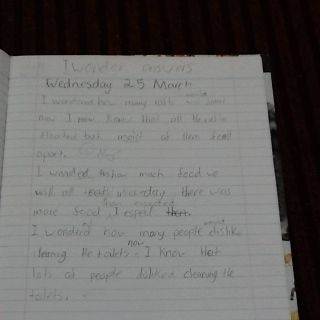 I wonder answers
Wednesday 25 March
I wondered how many rafts would
now I now know that all the rafts
floated but most of them fell
apart.
I wonded how much food we
will eat in a day, there was
more food than expected
I wondred how many people would dislike
cleaning the toilets. now I know that
lots of people disliked cleaning the
toilets.